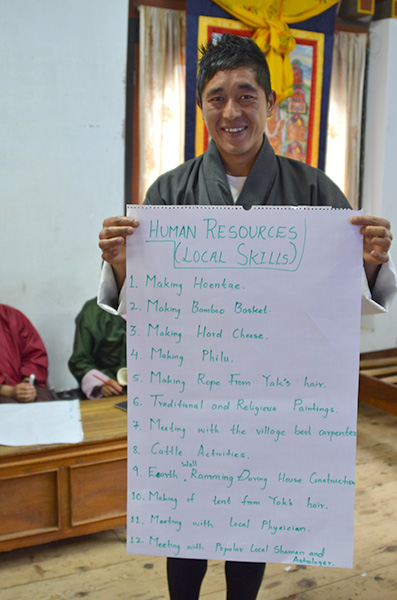 HUMAN RESOURCES
(LOCAL SKILLS)
1. Making Hoentae.
2. Making Bamboo Basket.
3. Making Hard Cheese.
4. Making Philu.
5. Making Rope From Yak's hair.
6. Traditional and Religious Paintings.
7. Meeting with the village best carpenter
8. Cattle Activities.
9. Earth wall Ramming During House Construction
10. Making of tent from Yak's hair.
11. Meeting with Local Physician.
12. Meeting with Popular Local Shaman and
Astrologer.